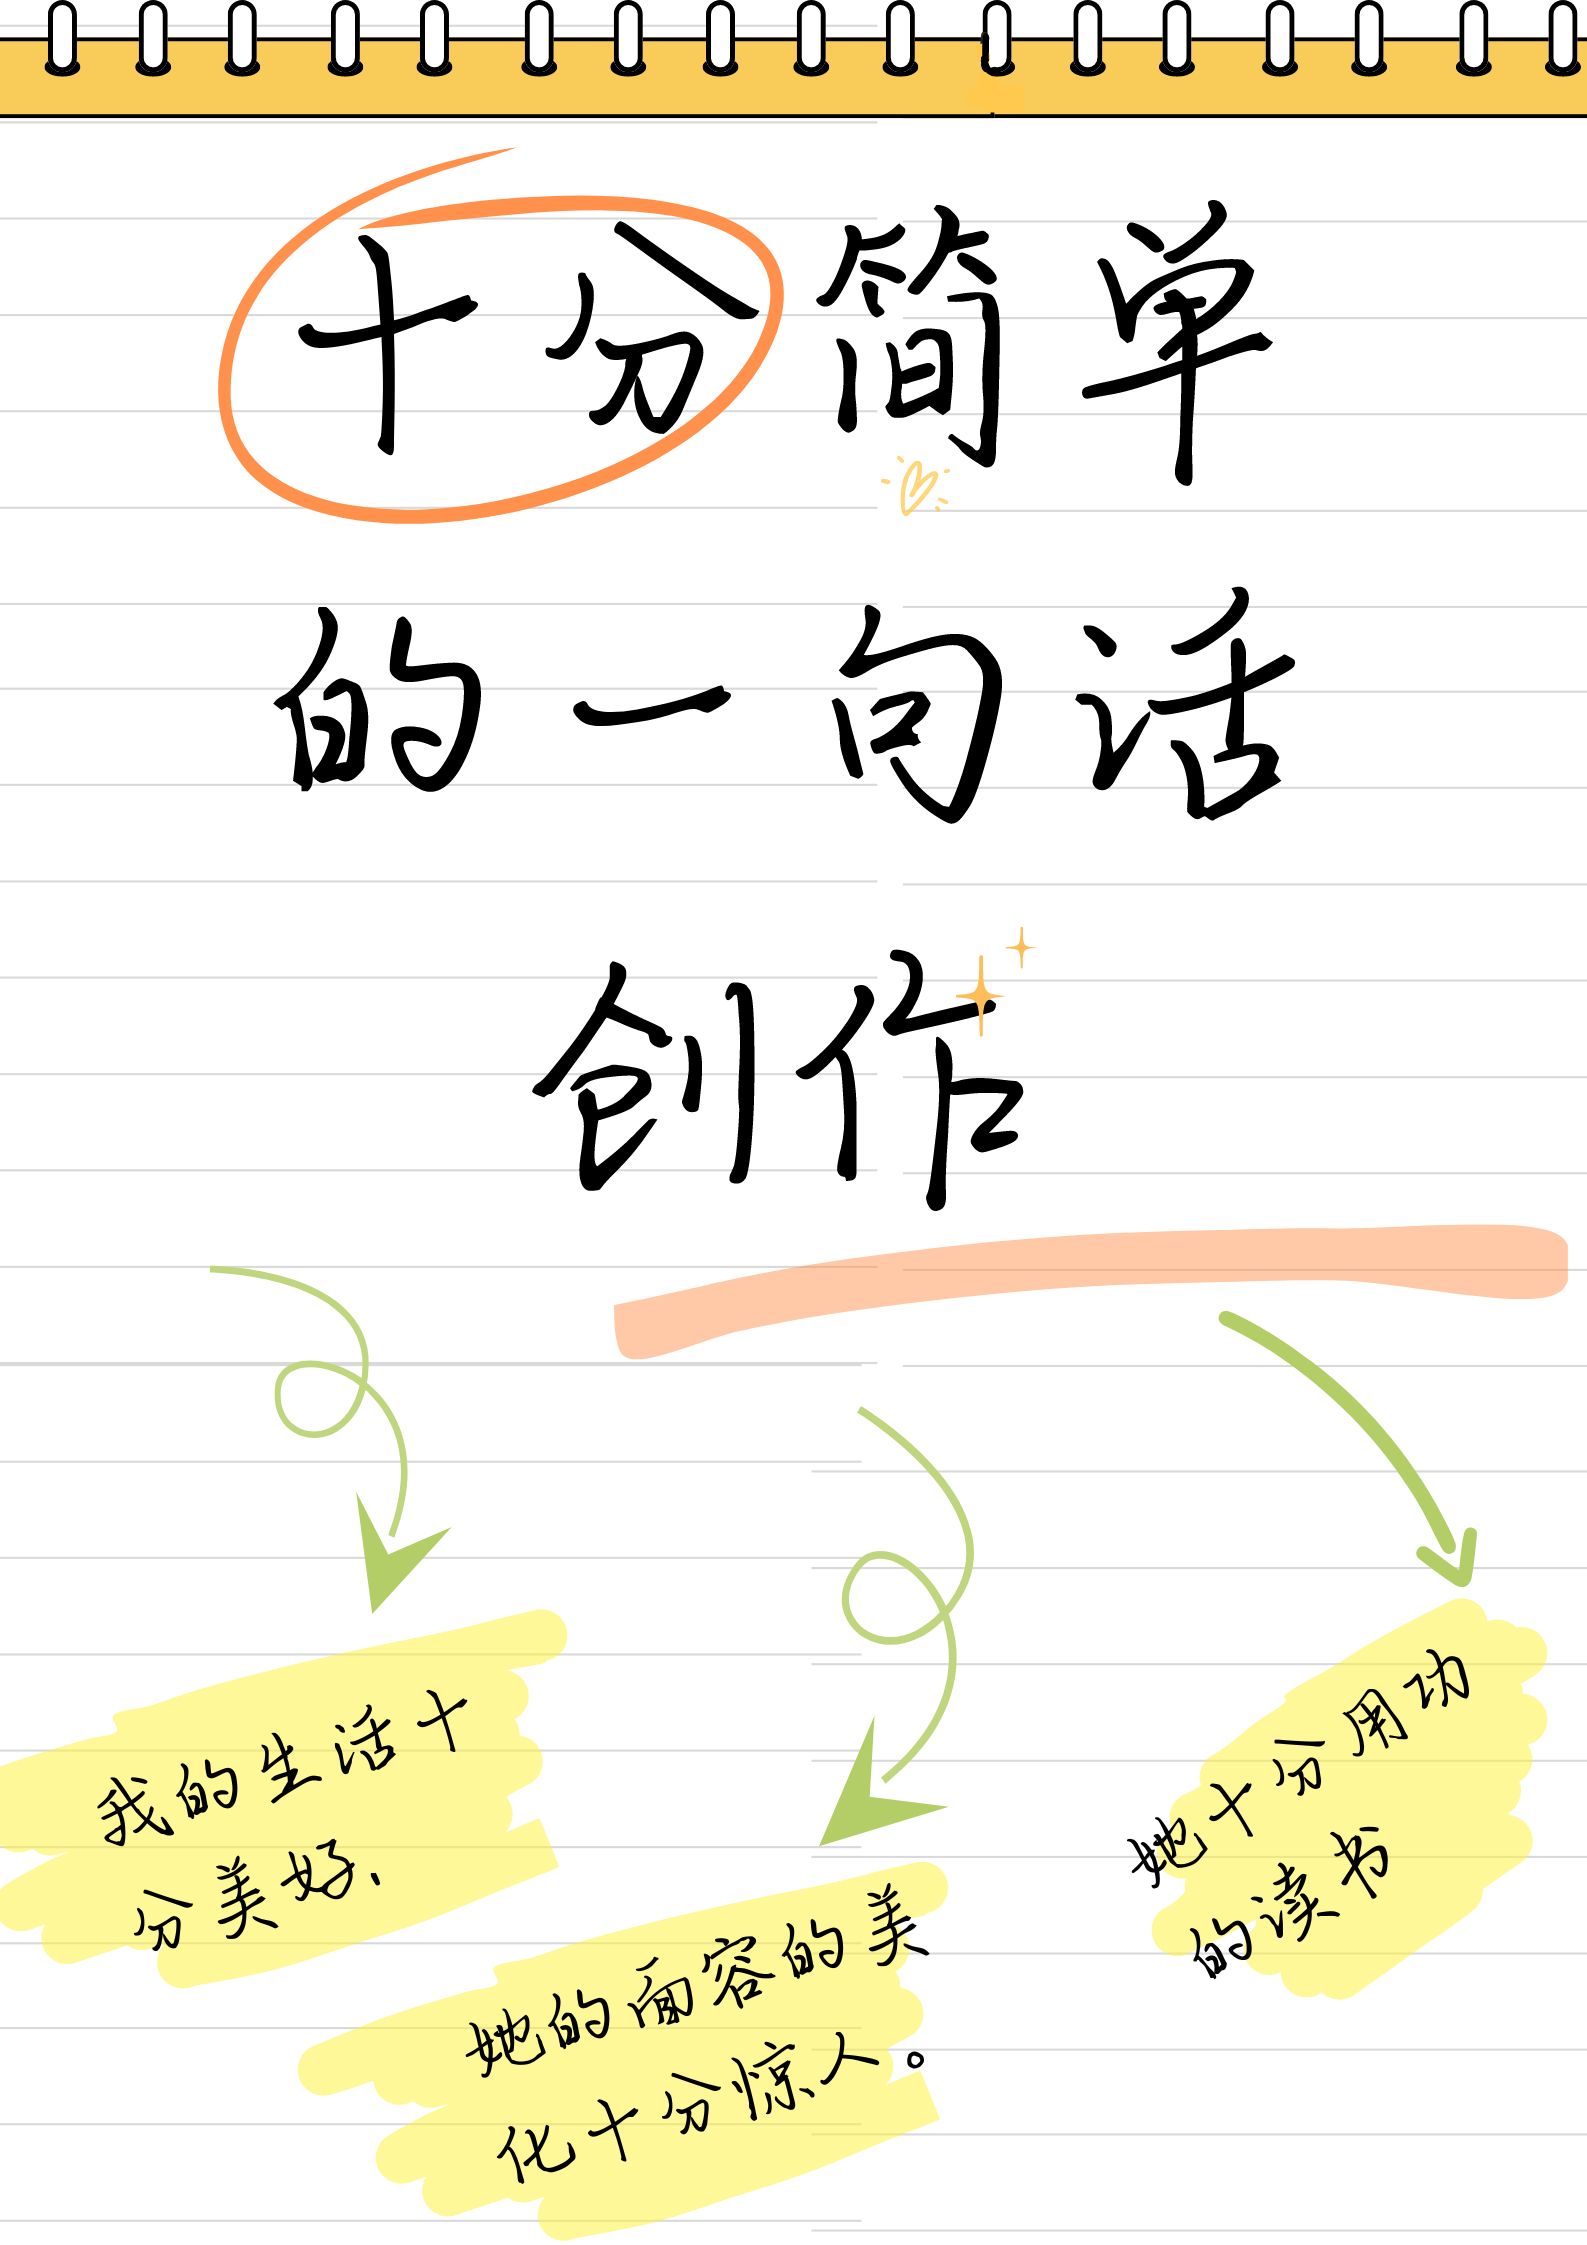 十分简单
的一句话
创作
我的生活十
分美好、
她的面容的美
化十分惊人。
她十分用功
的读书